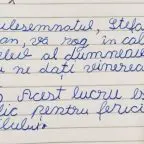 ulesemnatul, Ștefa
an, vă rog în cal
al dumneav
u ne dați vinerea
Acest lucru es
lic pentru ferici
lului.